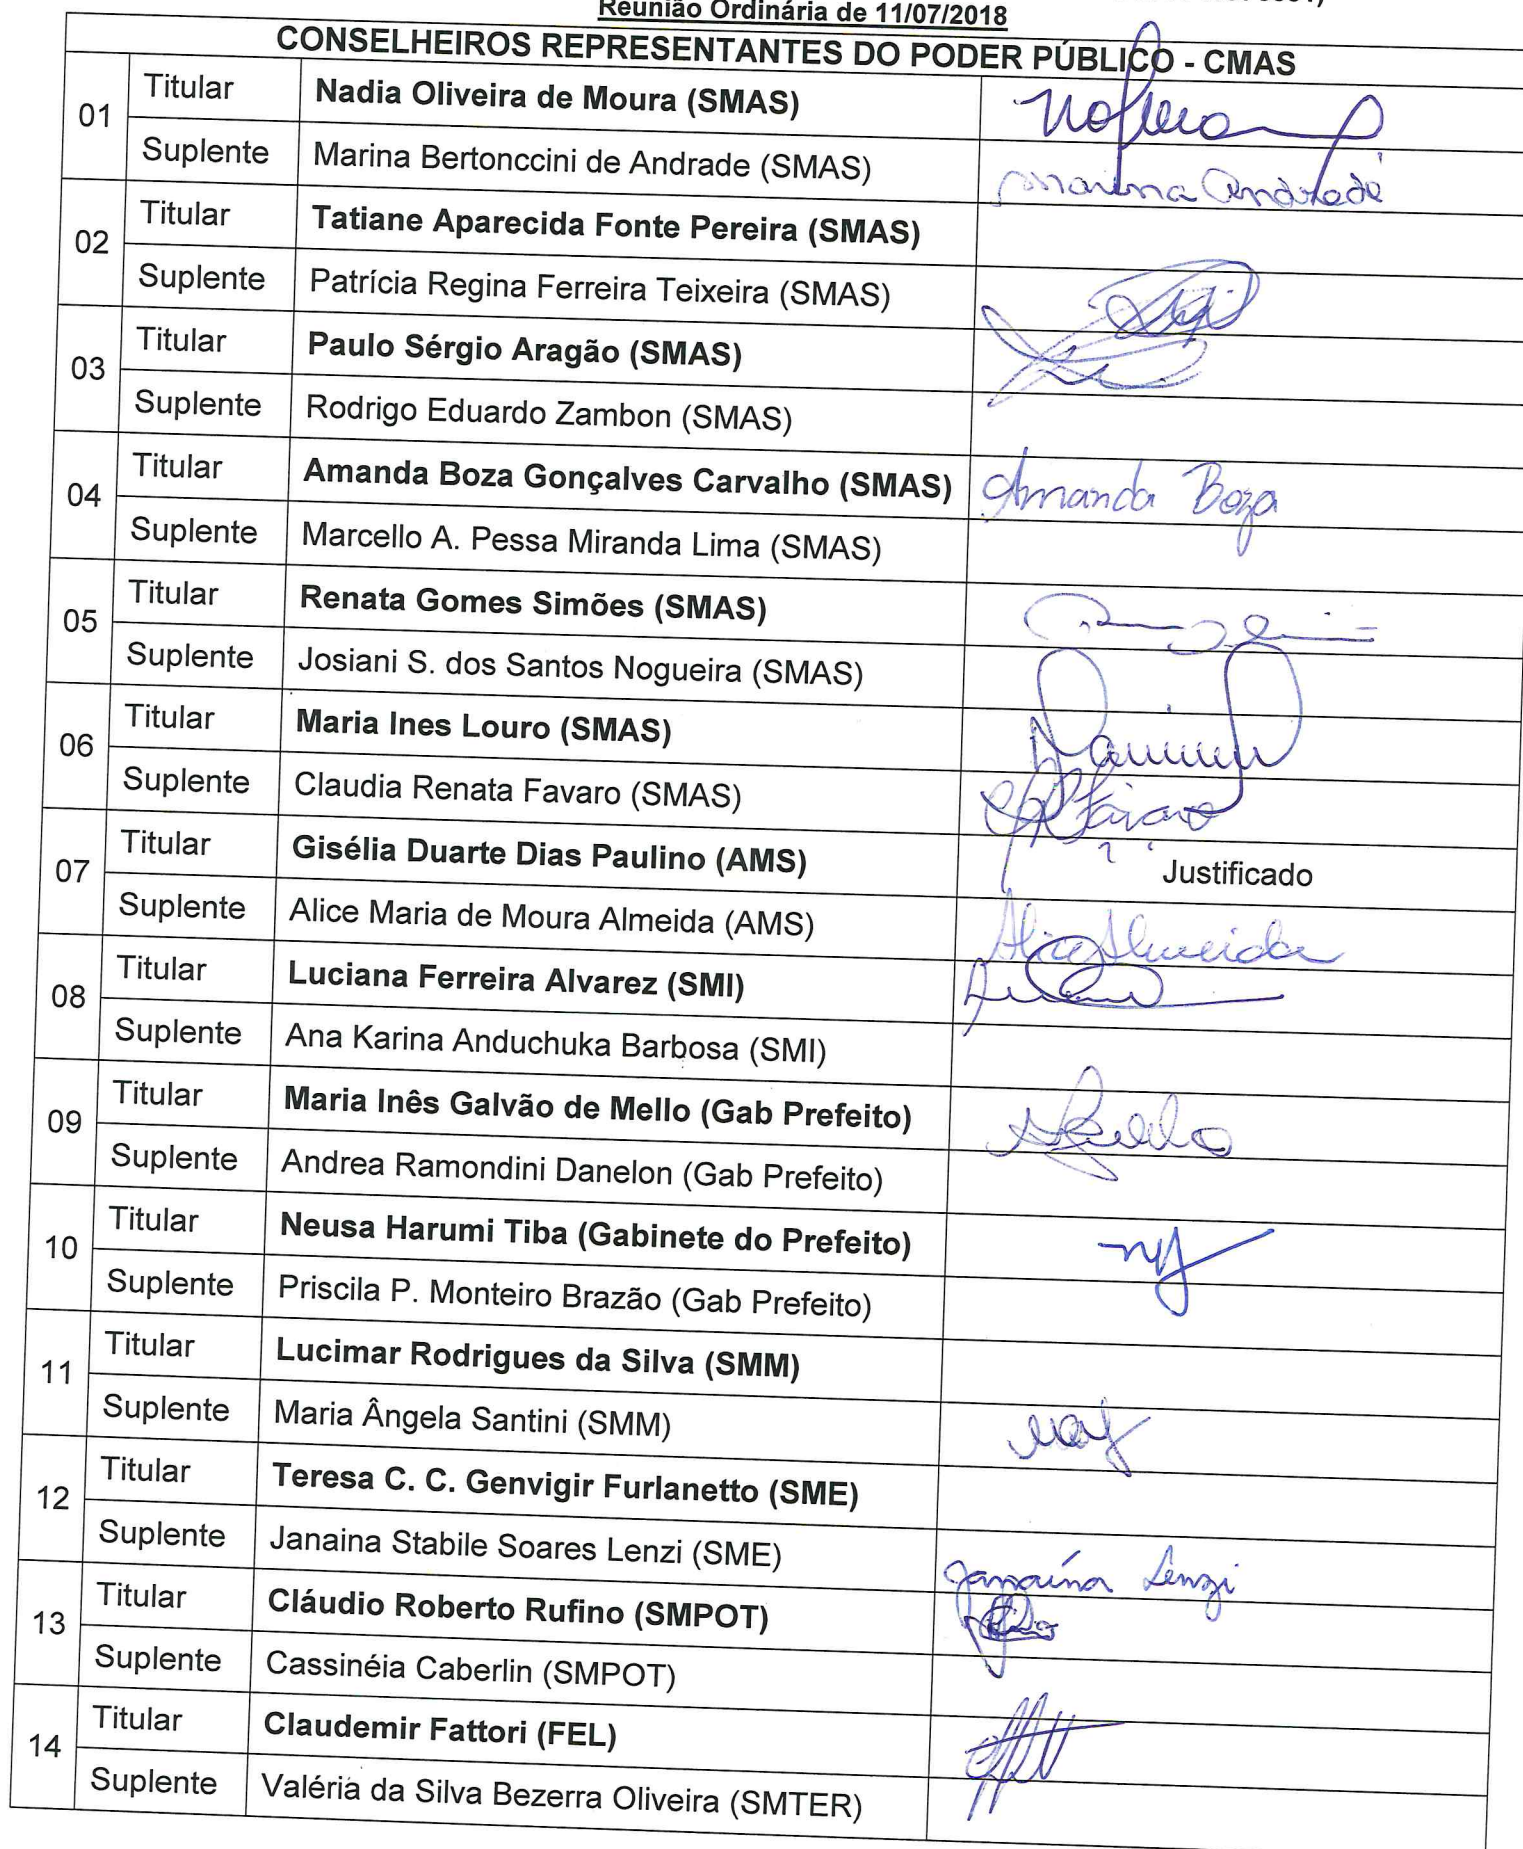 Reunião Ordinária de 11/07/2018
CONSELHEIROS REPRESENTANTES DO PODER PÚBLICO - CMAS
01 Titular Nadia Oliveira de Moura (SMAS)
Suplente Marina Bertonccini de Andrade (SMAS) Marina Andrade
02 Titular Tatiane Aparecida Fonte Pereira (SMAS)
Suplente Patrícia Regina Ferreira Teixeira (SMAS)
03 Titular Paulo Sérgio Aragão (SMAS)
Suplente Rodrigo Eduardo Zambon (SMAS)
04 Titular Amanda Boza Gonçalves Carvalho (SMAS) Amanda Boza
Suplente Marcello A. Pessa Miranda Lima (SMAS)
05 Titular Renata Gomes Simões (SMAS)
Suplente Josiani S. dos Santos Nogueira (SMAS)
06 Titular Maria Ines Louro (SMAS)
Suplente Claudia Renata Favaro (SMAS) Favaro
07 Titular Gisélia Duarte Dias Paulino (AMS) Justificado
Suplente Alice Maria de Moura Almeida (AMS) Alice Almeida
08 Titular Luciana Ferreira Alvarez (SMI)
Suplente Ana Karina Anduchuka Barbosa (SMI)
09 Titular Maria Inês Galvão de Mello (Gab Prefeito)
Suplente Andrea Ramondini Danelon (Gab Prefeito)
10 Titular Neusa Harumi Tiba (Gabinete do Prefeito)
Suplente Priscila P. Monteiro Brazão (Gab Prefeito)
11 Titular Lucimar Rodrigues da Silva (SMM)
Suplente Maria Ângela Santini (SMM)
12 Titular Teresa C. C. Genvigir Furlanetto (SME)
Suplente Janaina Stabile Soares Lenzi (SME) Janaína Lenzi
13 Titular Cláudio Roberto Rufino (SMPOT)
Suplente Cassinéia Caberlin (SMPOT)
14 Titular Claudemir Fattori (FEL)
Suplente Valéria da Silva Bezerra Oliveira (SMTER)